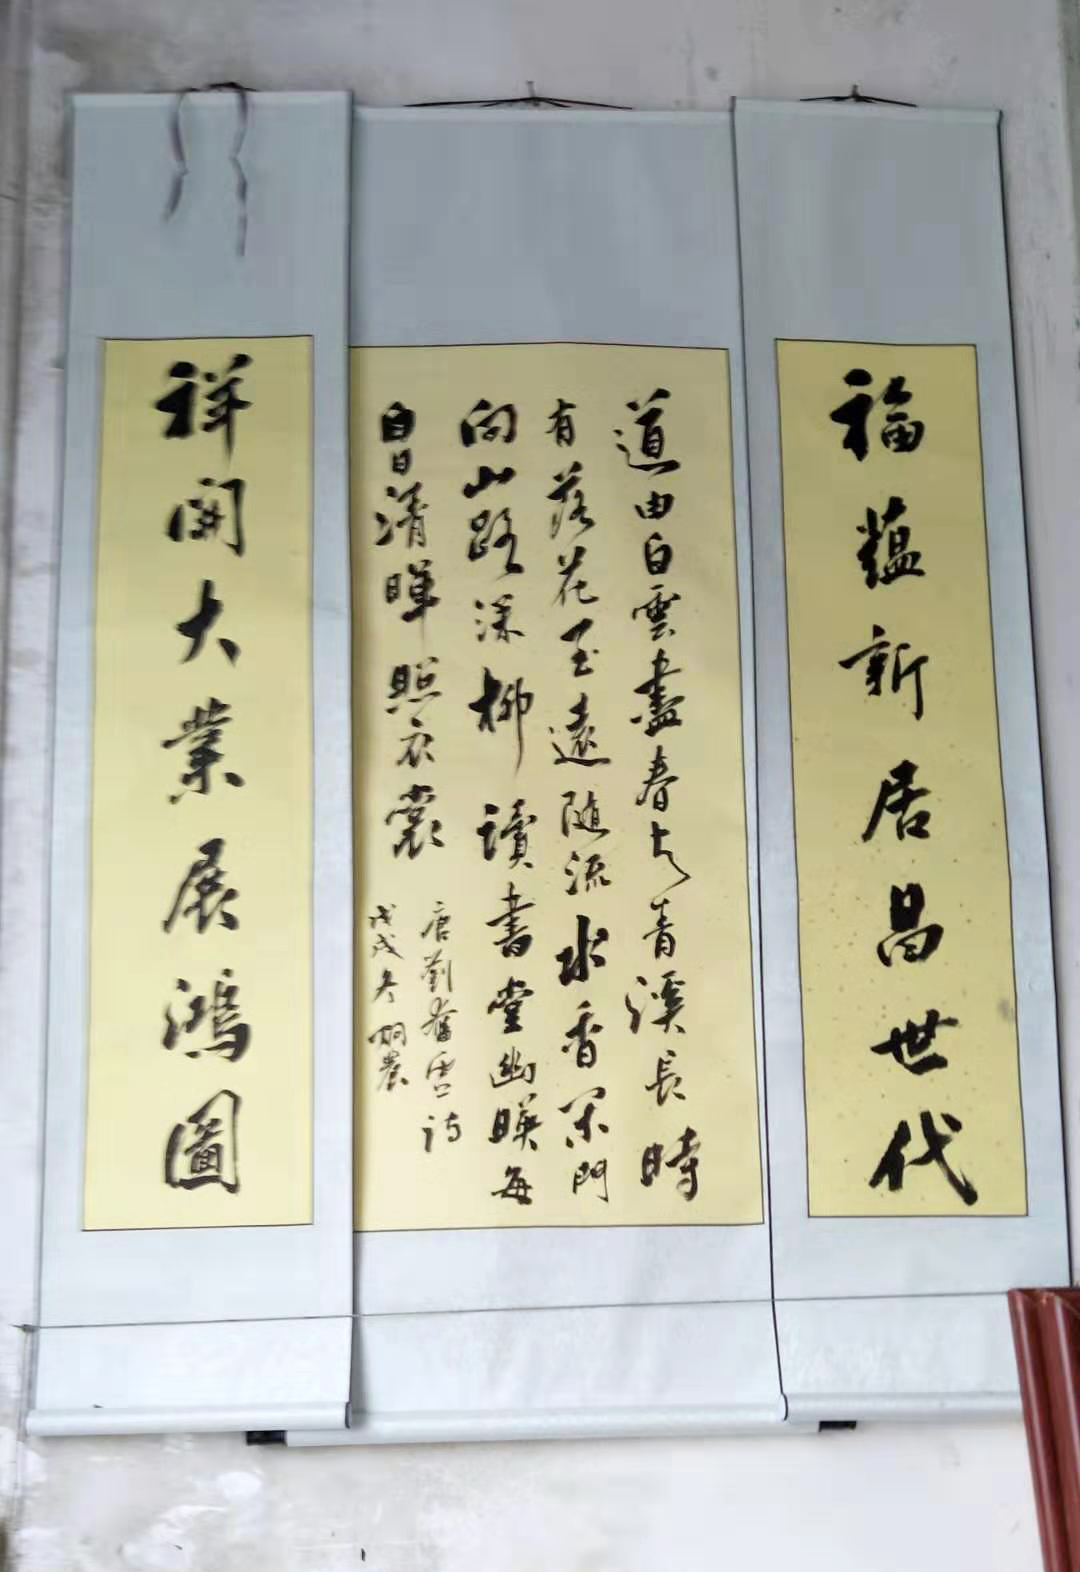 福藴新居昌世代
道由白雲盡春与青溪長時
有落花至遠隨流水香閑門
向山路深柳讀書堂幽暎每
白日清暉照衣裳
唐劉眘虛詩
戊戌冬
祥開大業展鴻圖